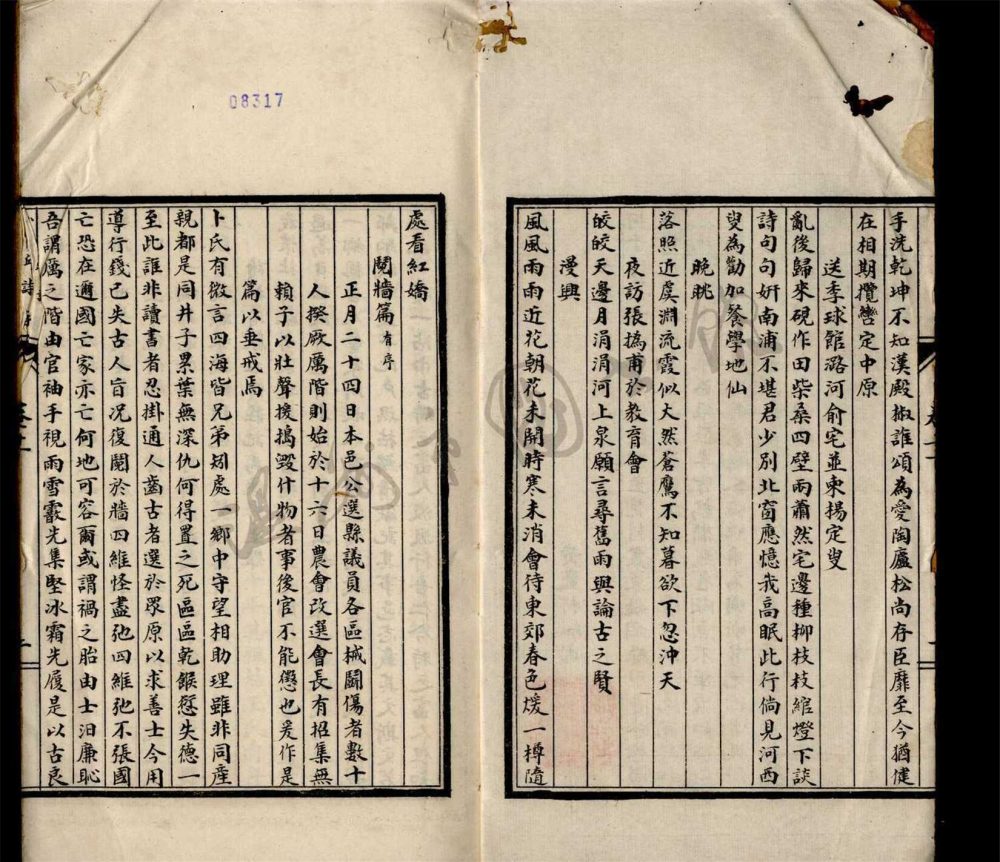 手洗乾坤不知漢殿椒誰頌為愛陶廬松尚存臣靡至今猶健
在相期攬轡定中原
送季球館潞河俞宅並柬楊定叟
亂後歸來硯作田柴桑四壁雨蕭然宅邊種柳枝枝綰燈下談
詩句句妍南浦不堪君少別北窗應憶我高眠此行倘見河西
叟為勸加餐學地仙
晚眺
落照近虞淵流霞似火然蒼鷹不知暮欲下忽沖天
夜訪張撝甫於教育會
皎皎天邊月涓涓河上泉願言尋舊雨與論古之賢
漫興
風風雨雨近花朝花未開時寒未消會待東郊春色煖一樽隨
處看紅嬌
鬩牆篇有序
正月二十四日本邑公選縣議員各區械鬬傷者數十
人揆厥厲階則始於十六日農會改選會長有招集無
賴子以壯聲援搗毀什物者事後官不能懲也爰作是
篇以垂戒焉
卜氏有微言四海皆兄弟矧處一鄉中守望相助理雖非同產
親都是同井子累葉無深仇何得置之死區區乾餱愆失德一
至此誰非讀書者忍掛通人齒古者選於眾原以求善士今用
導行錢已失古人旨况復鬩於牆四維怪盡弛四維弛不張國
亡恐在邇國亡家亦亡何地可容爾或謂禍之胎由士汨廉恥
吾謂厲之階由官袖手視雨雪霰先集堅冰霜先履是以古良
08317